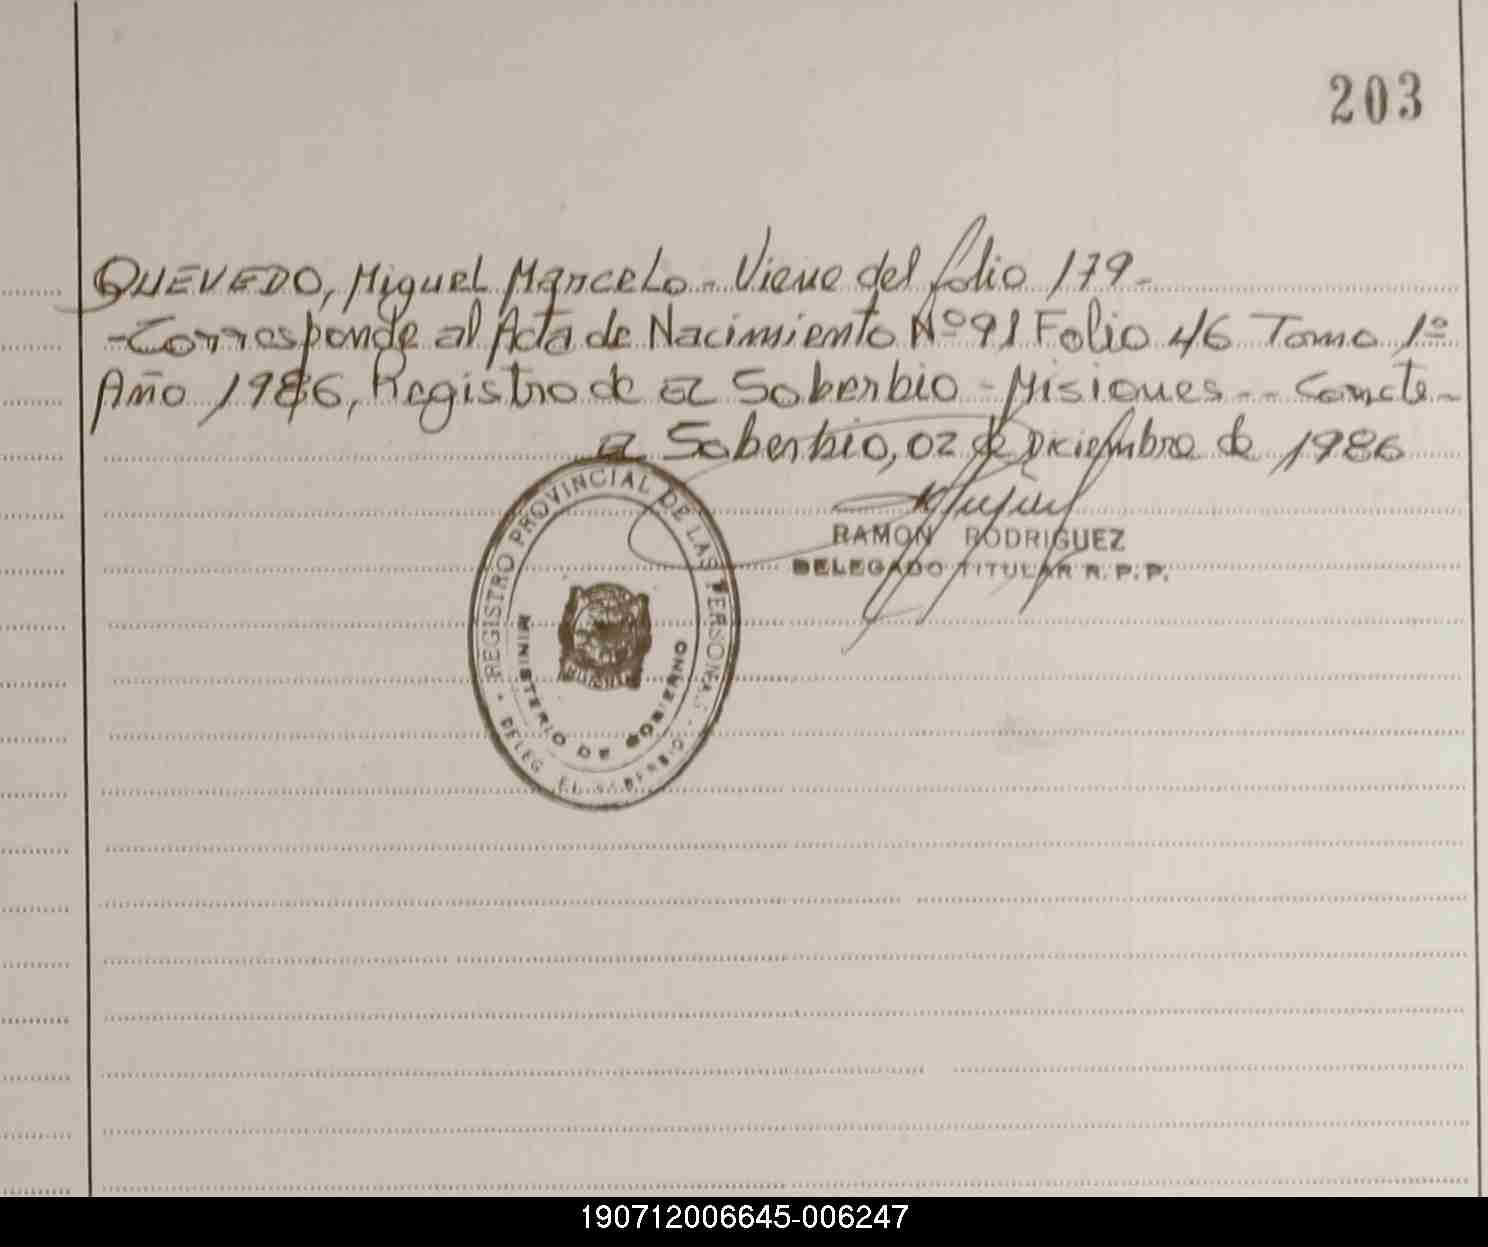 203
QUEVEDO, Miguel Marcelo - Viene del folio 179 -
- Corresponde al Acta de Nacimiento Nº 91 Folio 46 Tomo 1º
Año 1986, Registro de El Soberbio - Misiones - - Conste -
El Soberbio, 02 de Diciembre de 1986
RAMON RODRIGUEZ
DELEGADO TITULAR R. P. P.
REGISTRO PROVINCIAL DE LAS PERSONAS
MINISTERIO DE GOBIERNO
DELEG. EL SOBERBIO
190712006645-006247